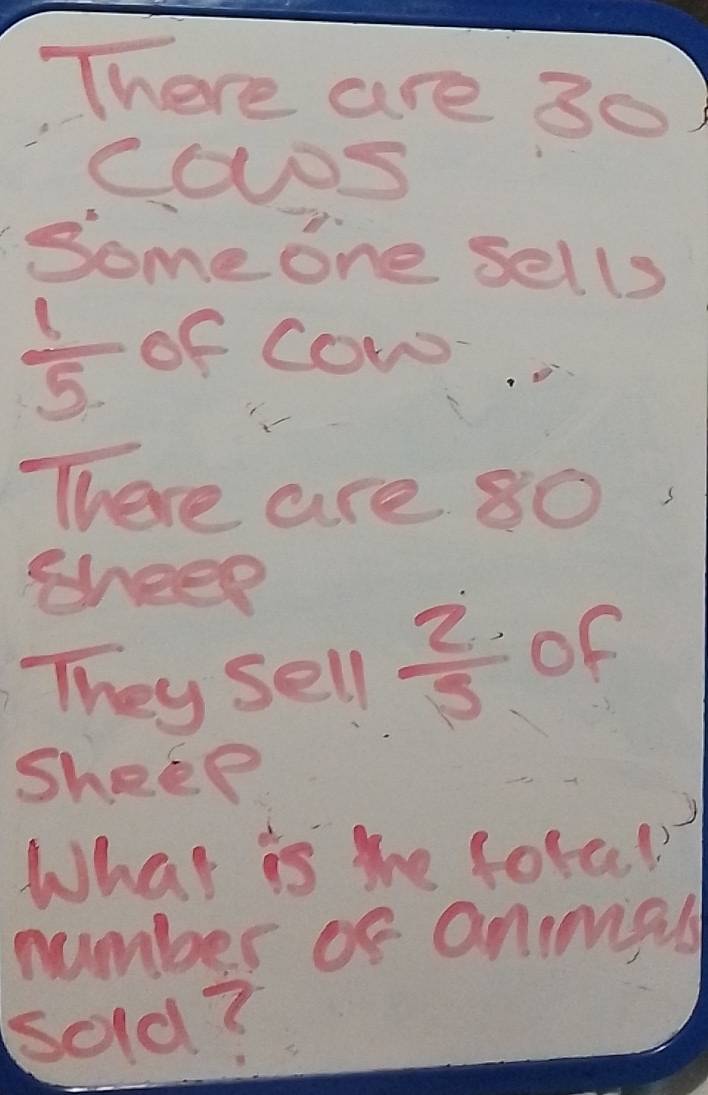 There are 30
cows
Someone sells
1/5 of cow
There are 80
sheep
They sell 2/5 of
sheep
What is the total
number of animals
sold?